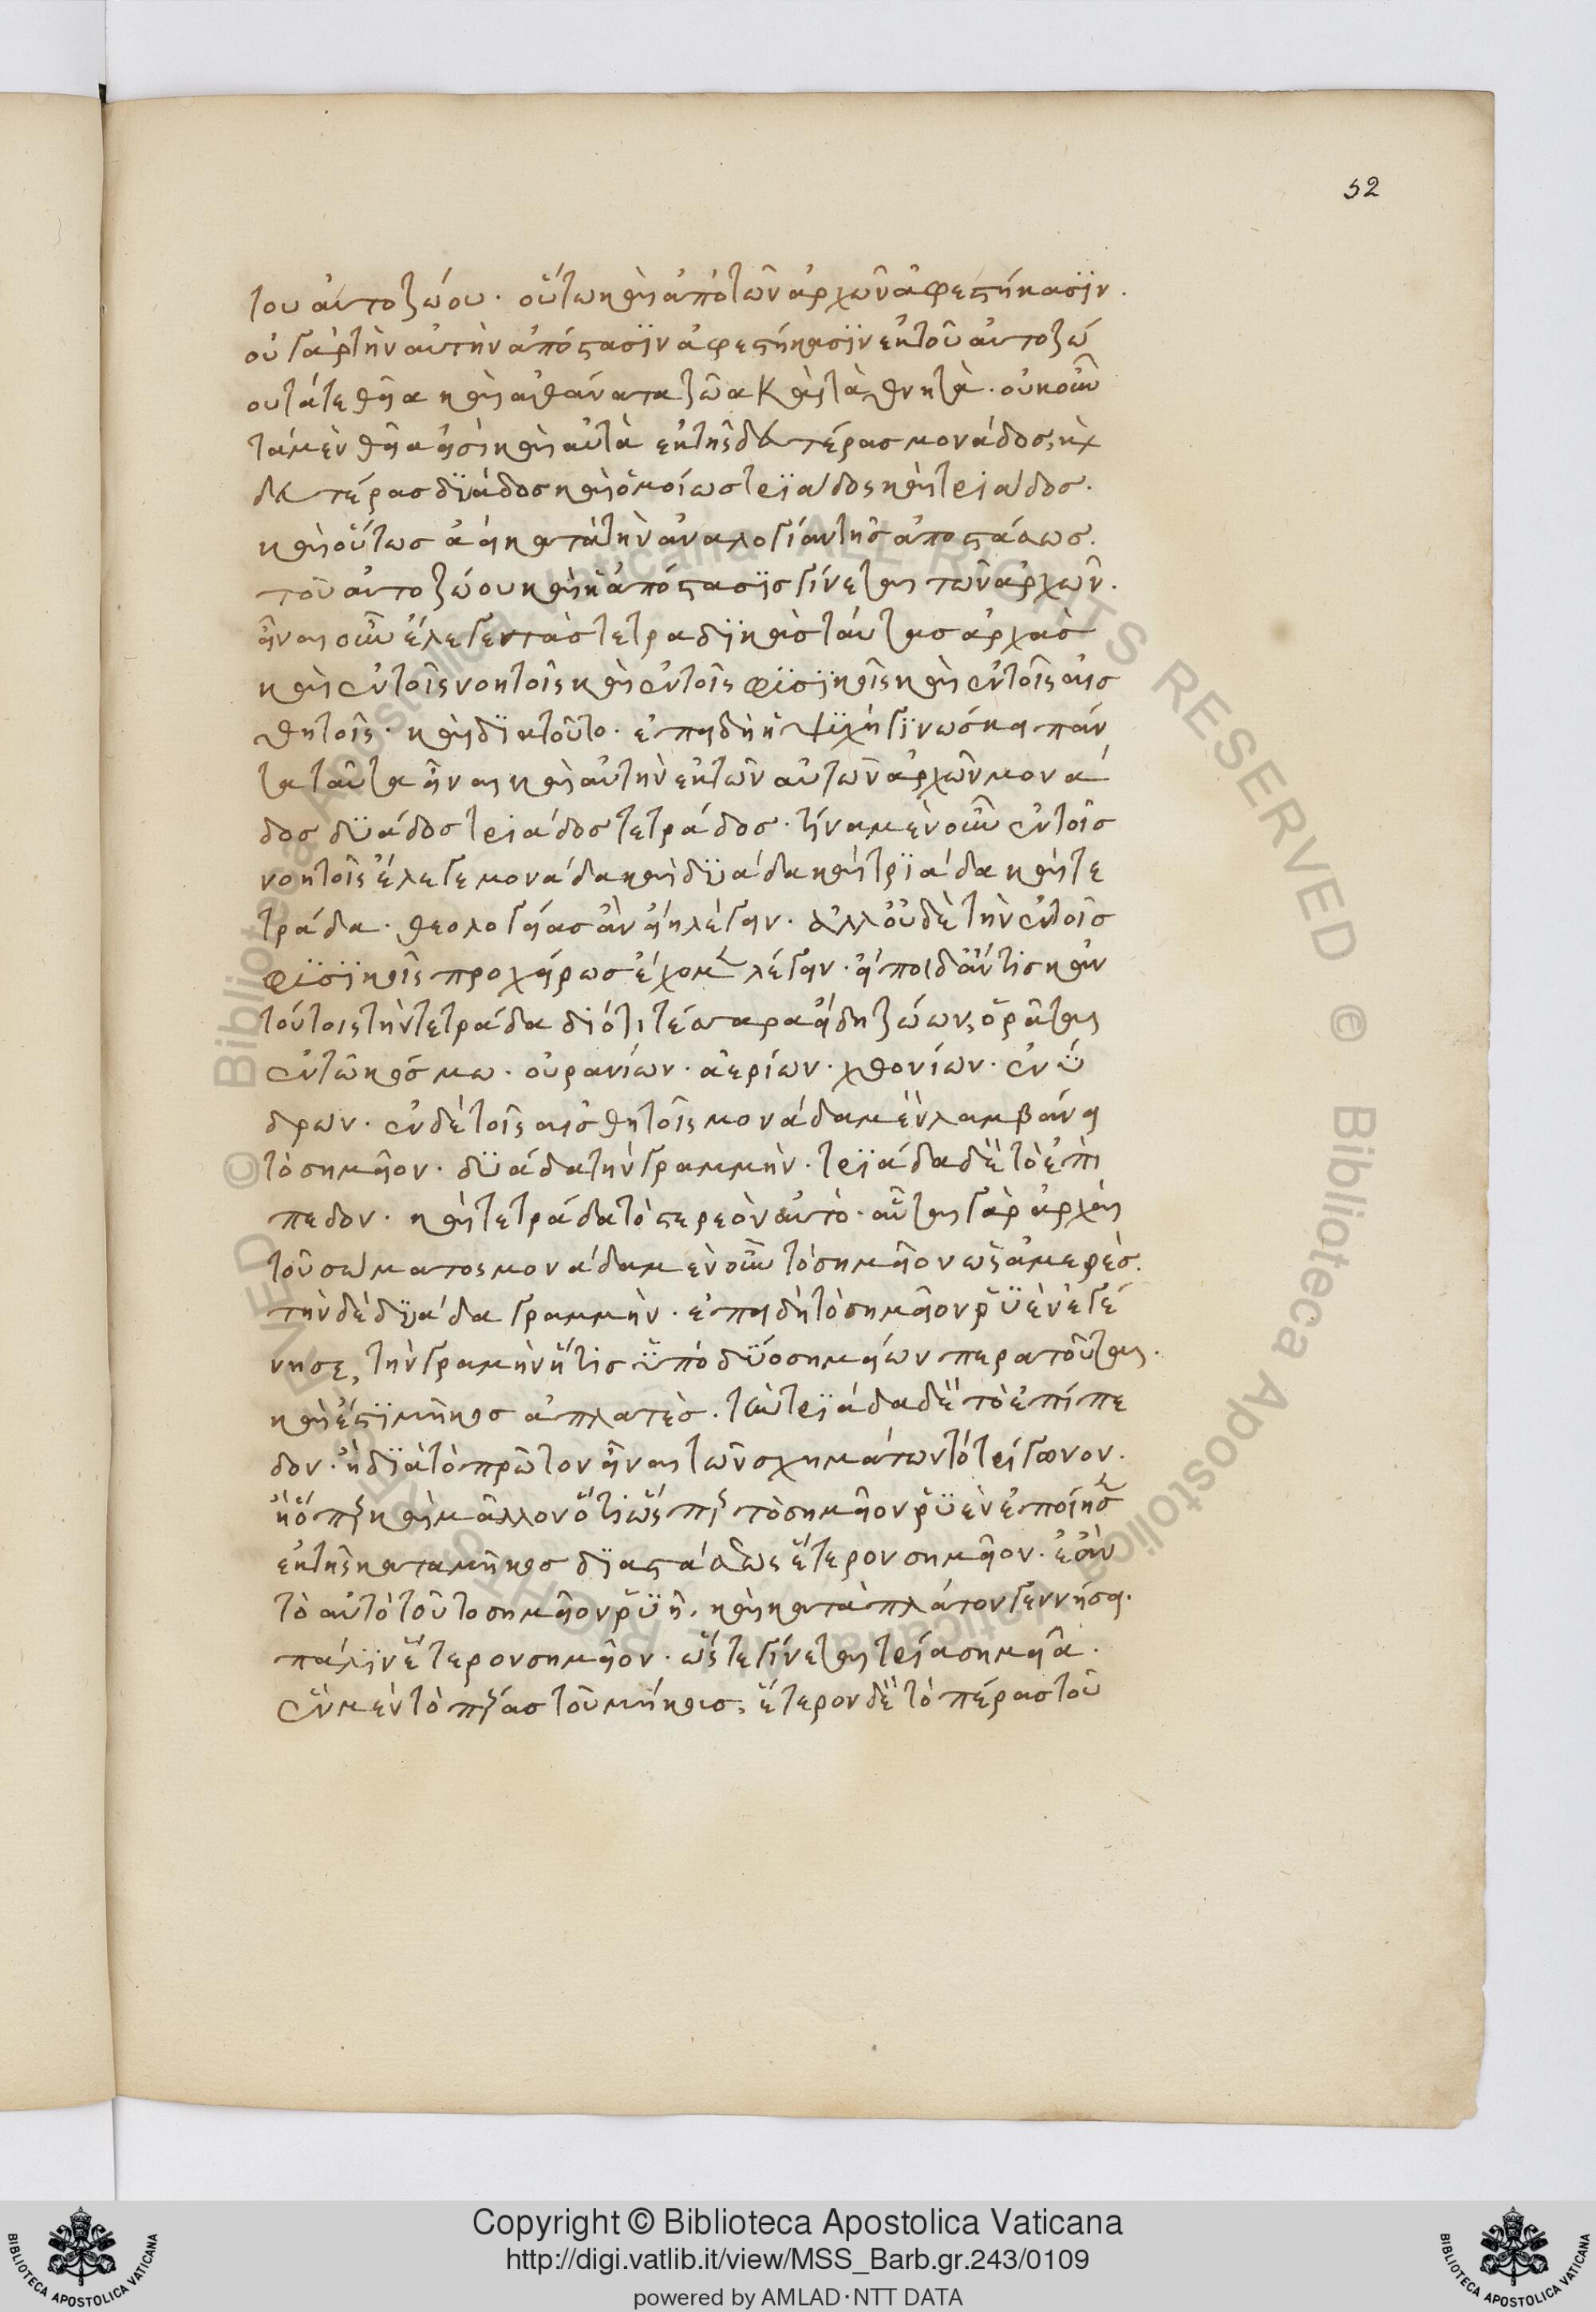 52
του αὐτοζώου. οὕτω καὶ ἀπὸ τῶν ἀρχῶν ἀφεστήκασϊν.
οὐ γὰρ τὴν αὐτὴν ἀπόστασϊν ἀφεστήκασϊν ἐκ τοῦ αὐτοζώ
ου τά τε θεῖα καὶ ἀθάνατα ζῶα καὶ τὰ θνητὰ. οὐκοῦν
τὰ μὲν θεῖα εἰσὶ καὶ αὐτὰ ἐκ τῆς δευτέρας μονάδος, καὶ
δευτέρας δϋάδος καὶ ὁμοίως τρϊάδος καὶ τριάδος.
καὶ οὕτως ἀεὶ κατὰ τὴν ἀναλογίαν τῆς ἀποστάσεως.
τοῦ αὐτοζώου καὶ ἡ ἀπόστασϊς γίνεται τῶν ἀρχῶν.
εἶναι οὖν ἔλεγεν τὰς τετραδϊκὰς ταύτας ἀρχὰς
καὶ ἐν τοῖς νοητοῖς καὶ ἐν τοῖς φϋσϊκοῖς καὶ ἐν τοῖς αἰσ
θητοῖς. καὶ δϊὰ τοῦτο. ἐπειδὴ ἡ ψϋχὴ γϊνώσκει πάν
τα ταῦτα εἶναι καὶ αὐτὴν ἐκ τῶν αὐτῶν ἀρχῶν μονά
δος δϋάδος τριάδος τετράδος. τίνα μὲν οὖν ἐν τοῖς
νοητοῖς ἔλεγε μονάδα καὶ δϋάδα καὶ τρϊάδα καὶ τε
τράδα. θεολογίας ἂν εἴη λέγειν. ἀλλ οὐδὲ τὴν ἐν τοῖς
φϋσϊκοῖς προχείρως ἔχομεν λέγειν. εἴποι δ ἄν τις κἀν
τούτοις τὴν τετράδα διότι τέσσαρα εἴδη ζώων, ὁρᾶται
ἐν τῶ κόσμω. οὐρανίων. ἀερίων. χθονίων. ἐνϋ
δρων. ἐν δὲ τοῖς αἰσθητοῖς μονάδα μὲν λαμβάνει
τὸ σημεῖον. δϋάδα τὴν γραμμὴν. τρϊάδα δὲ τὸ ἐπὶ
πεδον. καὶ τετράδα τὸ στερεὸν αὐτὸ. αὗται γὰρ ἀρχαὶ
τοῦ σώματος μονάδα μὲν οὖν τὸ σημεῖον ὡς ἀμερὲς.
τὴν δὲ δϋάδα γραμμὴν. ἐπειδὴ τὸ σημεῖον ῥϋὲν ἐγέ
νησε, τὴν γραμὴν ἥτις ϋπὸ δϋο σημείων περατοῦται.
καὶ ἔστϊ μῆκος ἀπλατὲς. τὴν τρϊάδα δὲ τὸ ἐπίπε
δον. ἢ δϊὰ τὸ πρῶτον εἶναι τῶν σχημάτων τὸ τρίγωνον.
ἢ ὅπερ καὶ μᾶλλον ὅτι ὥσπερ τὸ σημεῖον ῥϋὲν ἐποίησεν
ἐκ τῆς κατα μῆκος δϊαστάσεως ἕτερον σημεῖον. ἐὰν
τὸ αὐτὸ τοῦτο σημεῖον ῥϋῆ. καὶ κατὰ πλάτον γεννήσει.
πάλϊν ἕτερον σημεῖον. ὥστε γίνεται τρία σημεῖα.
ἓν μὲν τὸ πέρας τοῦ μήκους, ἕτερον δὲ τὸ πέρας τοῦ
Copyright © Biblioteca Apostolica Vaticana
http://digi.vatlib.it/view/MSS_Barb.gr.243/0109
powered by AMLAD·NTT DATA
BIBLIOTECA APOSTOLICA VATICANA
BIBLIOTECA APOSTOLICA VATICANA